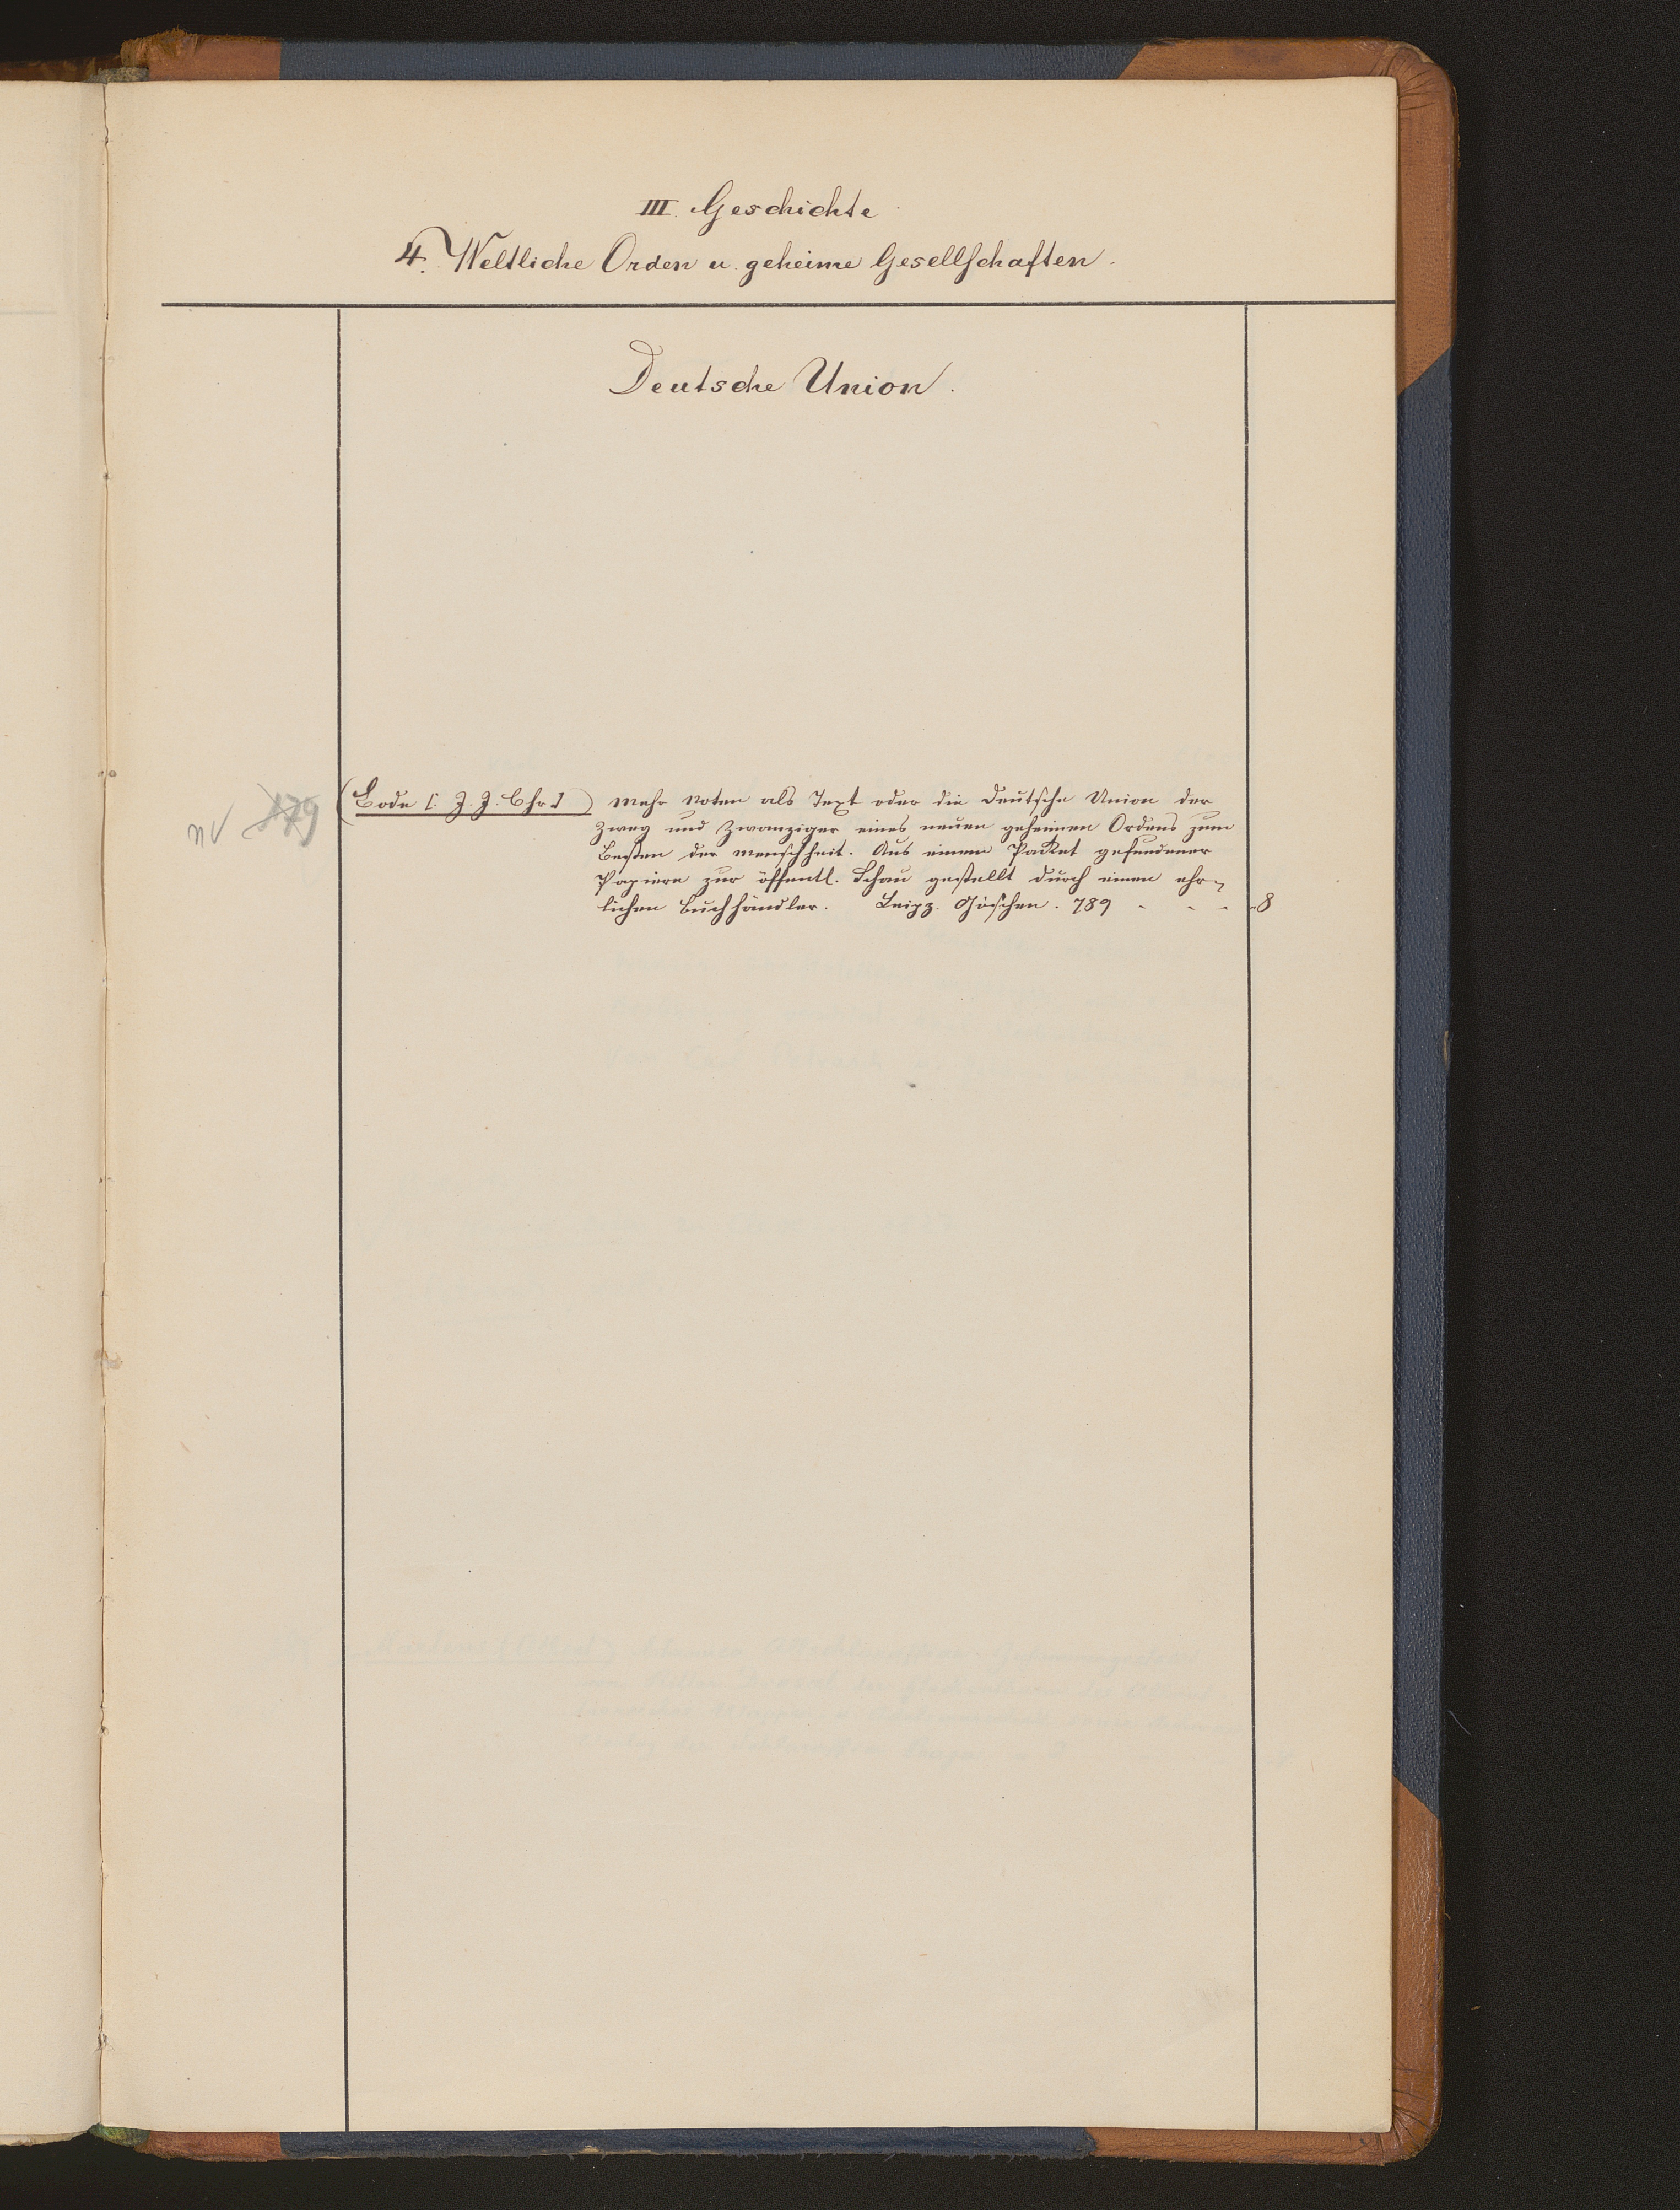 III. Geschichte
4. Weltliche Orden u. geheime Gesellschaften.
Deutsche Union.
nv 179 (Bode [: J. J. Chr.]) Mehr Noten als Text oder die Deutsche Union der
Zweÿ und Zwanziger eines neuen geheimen Ordens zum
Besten der Menschheit. Aus einem Packet gefundener
Papiere zur öffentl. Schau gestellt durch einen ehr-
lichen Buchhändler. Leipz. Göschen. 789 - - - 8